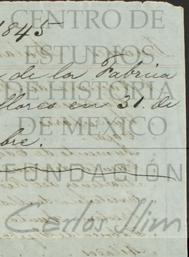 1845
CENTRO DE
ESTUDIOS
de la Fabrica
DE HISTORIA
Flores en 31 de
DE MEXICO
bre.
FUNDACIÓN
Carlos Slim